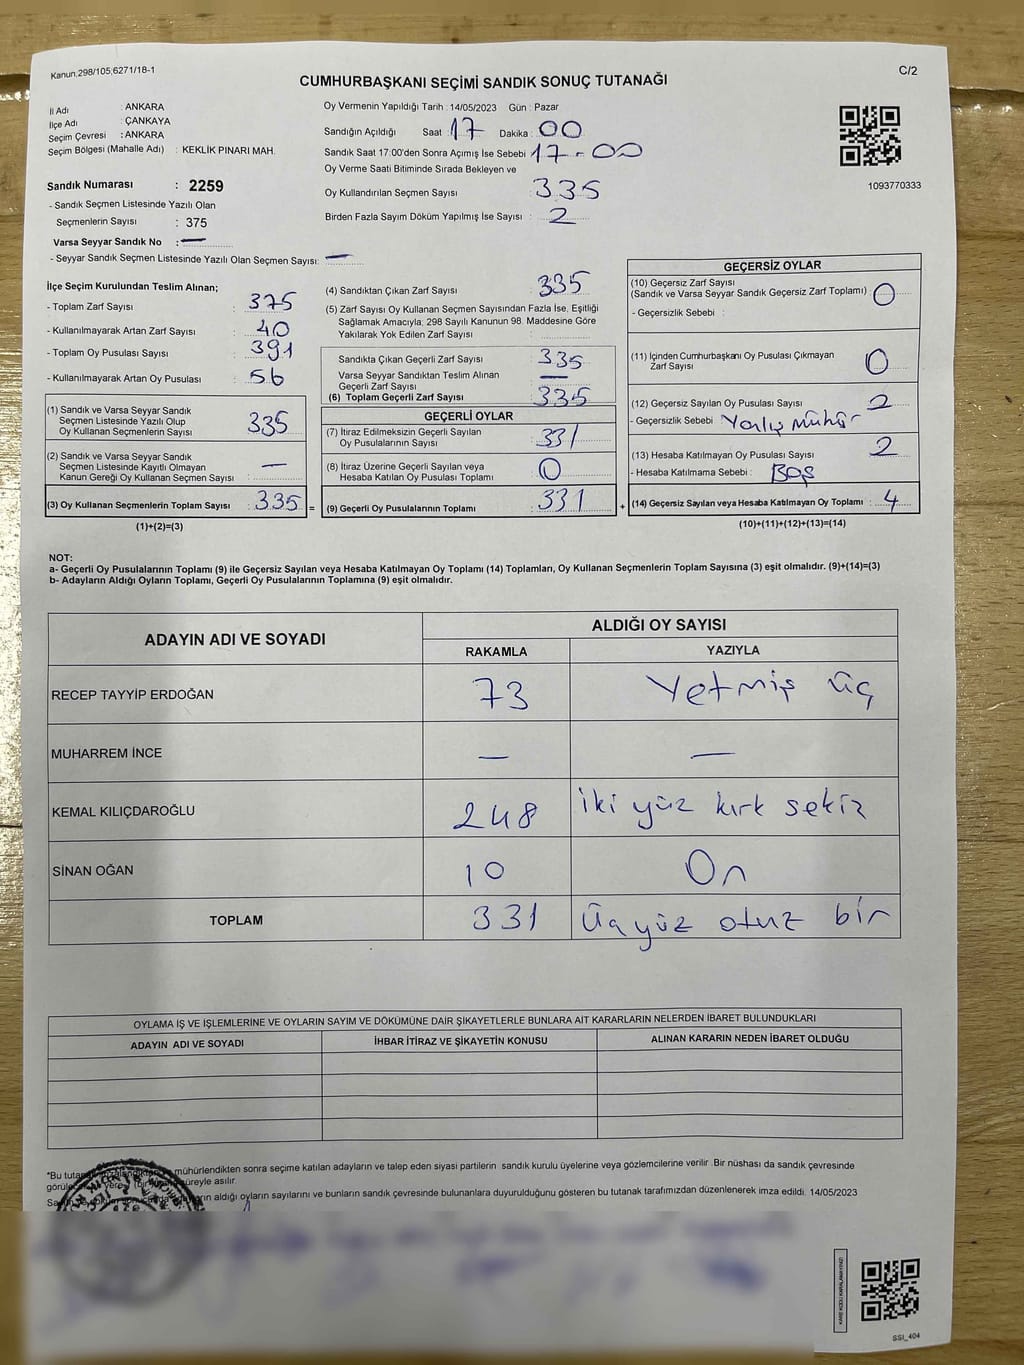 Kanun.298/105,6271/18-1
C/2
CUMHURBAŞKANI SEÇİMİ SANDIK SONUÇ TUTANAĞI
İl Adı : ANKARA
İlçe Adı : ÇANKAYA
Seçim Çevresi : ANKARA
Seçim Bölgesi (Mahalle Adı) : KEKLİK PINARI MAH.
Sandık Numarası : 2259
- Sandık Seçmen Listesinde Yazılı Olan
Seçmenlerin Sayısı : 375
Varsa Seyyar Sandık No : —
- Seyyar Sandık Seçmen Listesinde Yazılı Olan Seçmen Sayısı: —
Oy Vermenin Yapıldığı Tarih : 14/05/2023 Gün : Pazar
Sandığın Açıldığı Saat : 17 Dakika : 00
Sandık Saat 17:00'den Sonra Açımış İse Sebebi : 17-00
Oy Verme Saati Bitiminde Sırada Bekleyen ve
Oy Kullandırılan Seçmen Sayısı : 335
Birden Fazla Sayım Döküm Yapılmış İse Sayısı : 2
1093770333
İlçe Seçim Kurulundan Teslim Alınan;
- Toplam Zarf Sayısı : 375
- Kullanılmayarak Artan Zarf Sayısı : 40
- Toplam Oy Pusulası Sayısı : 391
- Kullanılmayarak Artan Oy Pusulası : 56
(1) Sandık ve Varsa Seyyar Sandık
Seçmen Listesinde Yazılı Olup
Oy Kullanan Seçmenlerin Sayısı : 335
(2) Sandık ve Varsa Seyyar Sandık
Seçmen Listesinde Kayıtlı Olmayan
Kanun Gereği Oy Kullanan Seçmen Sayısı : —
(3) Oy Kullanan Seçmenlerin Toplam Sayısı : 335 =
(1)+(2)=(3)
(4) Sandıktan Çıkan Zarf Sayısı : 335
(5) Zarf Sayısı Oy Kullanan Seçmen Sayısından Fazla İse, Eşitliği
Sağlamak Amacıyla, 298 Sayılı Kanunun 98. Maddesine Göre
Yakılarak Yok Edilen Zarf Sayısı :
Sandıkta Çıkan Geçerli Zarf Sayısı : 335
Varsa Seyyar Sandıktan Teslim Alınan
Geçerli Zarf Sayısı : —
(6) Toplam Geçerli Zarf Sayısı : 335
GEÇERLİ OYLAR
(7) İtiraz Edilmeksizin Geçerli Sayılan
Oy Pusulalarının Sayısı : 331
(8) İtiraz Üzerine Geçerli Sayılan veya
Hesaba Katılan Oy Pusulası Toplamı : 0
(9) Geçerli Oy Pusulalarının Toplamı : 331 +
GEÇERSİZ OYLAR
(10) Geçersiz Zarf Sayısı
(Sandık ve Varsa Seyyar Sandık Geçersiz Zarf Toplamı) : 0
- Geçersizlik Sebebi :
(11) İçinden Cumhurbaşkanı Oy Pusulası Çıkmayan
Zarf Sayısı : 0
(12) Geçersiz Sayılan Oy Pusulası Sayısı : 2
- Geçersizlik Sebebi : Yanlış Mühür
(13) Hesaba Katılmayan Oy Pusulası Sayısı : 2
- Hesaba Katılmama Sebebi : Boş
(14) Geçersiz Sayılan veya Hesaba Katılmayan Oy Toplamı : 4
(10)+(11)+(12)+(13)=(14)
NOT:
a- Geçerli Oy Pusulalarının Toplamı (9) ile Geçersiz Sayılan veya Hesaba Katılmayan Oy Toplamı (14) Toplamları, Oy Kullanan Seçmenlerin Toplam Sayısına (3) eşit olmalıdır. (9)+(14)=(3)
b- Adayların Aldığı Oyların Toplamı, Geçerli Oy Pusulalarının Toplamına (9) eşit olmalıdır.
ADAYIN ADI VE SOYADI
ALDIĞI OY SAYISI
RAKAMLA YAZIYLA
RECEP TAYYİP ERDOĞAN 73 Yetmiş üç
MUHARREM İNCE — —
KEMAL KILIÇDAROĞLU 248 iki yüz kırk sekiz
SİNAN OĞAN 10 On
TOPLAM 331 Üçyüz otuz bir
OYLAMA İŞ VE İŞLEMLERİNE VE OYLARIN SAYIM VE DÖKÜMÜNE DAİR ŞİKAYETLERLE BUNLARA AİT KARARLARIN NELERDEN İBARET BULUNDUKLARI
ADAYIN ADI VE SOYADI İHBAR İTİRAZ VE ŞİKAYETİN KONUSU ALINAN KARARIN NEDEN İBARET OLDUĞU
*Bu mühürlendikten sonra seçime katılan adayların ve talep eden siyasi partilerin sandık kurulu üyelerine veya gözlemcilerine verilir. Bir nüshası da sandık çevresinde
süreyle asılır.
aldığı oyların sayılarını ve bunların sandık çevresinde bulunanlara duyurulduğunu gösteren bu tutanak tarafımızdan düzenlenerek imza edildi. 14/05/2023
SSI_404